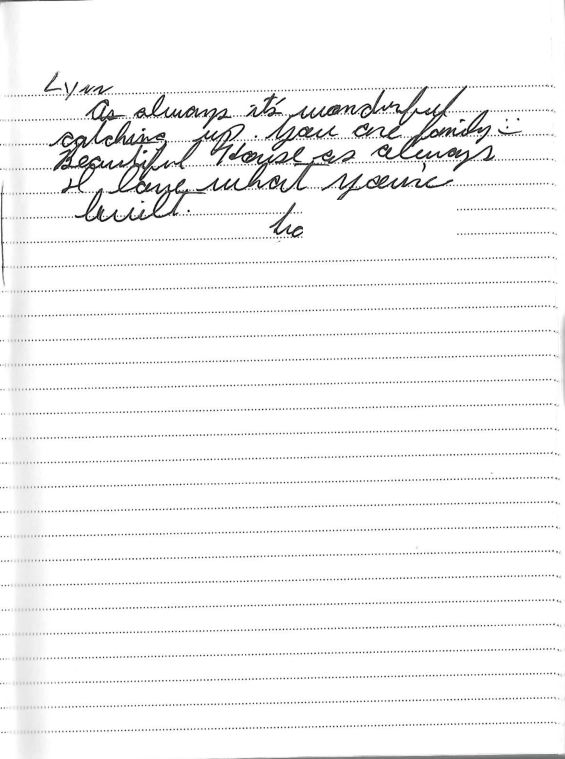 Lynn
As always it's wonderful
catching up. You are family :)
Beautiful House as always
I love what you've
built.